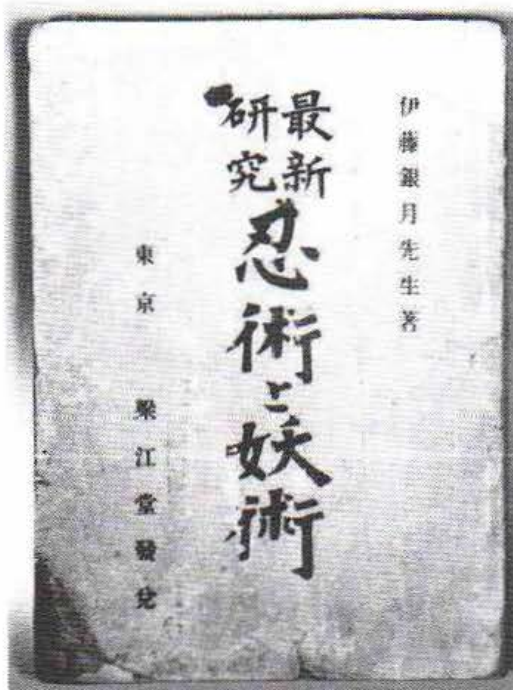 伊藤銀月先生著
最新
研究
忍術と妖術
東京 梁江堂發兌